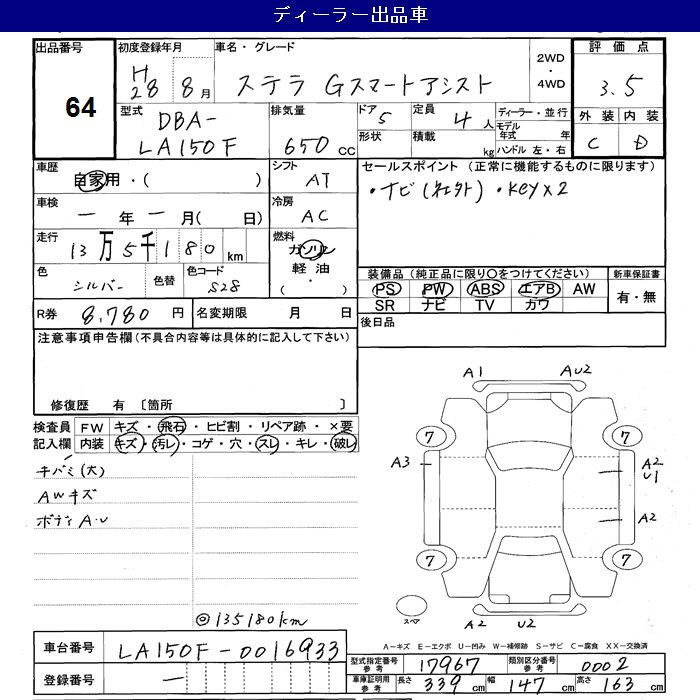 ディーラー出品車
出品番号
64
初度登録年月
H 28 8月
車名・グレード
ステラ Gスマートアシスト
2WD
・
4WD
評価点
3.5
外装 内装
C D
型式
DBA-
LA150F
排気量
650 cc
ドア 5
形状
定員 4 人
積載 kg
ディーラー・並行
モデル年式 年式
ハンドル 左・右
車歴
自家用・( )
シフト
AT
車検
一 年 一 月( 日)
冷房
AC
走行
13万5千180km
燃料
ガソリン
軽油
( ・ )
色
シルバー
色替
色コード
S28
セールスポイント (正常に機能するものに限ります)
・ナビ(社外) ・KEY×2
装備品 (純正品に限り〇をつけてください)
PS PW ABS エアB AW
SR ナビ TV カワ
新車保証書
有・無
R券 8,780 円
名変期限 月 日
後日品
注意事項申告欄 (不具合内容等は具体的に記入して下さい)
修復歴 有 〔箇所 〕
検査員記入欄
FW キズ・飛石・ヒビ割・リペア跡・×要
内装 キズ・汚レ・コゲ・穴・スレ・キレ・破レ
キバミ(大)
AWキズ
ボディA・U
◎135180km
A1 AU2
7 7
A3 A2
U1
A2
7 7
スペア
A2 U2
A－キズ E－エクボ U－凹み W－補修跡 S－サビ C－腐食 XX－交換済
車台番号 LA150F-0016933
登録番号 一
型式指定番号 参考 17967
類別区分番号 参考 0002
車庫証明用 参考 長さ 339 cm 幅 147 cm 高さ 163 cm